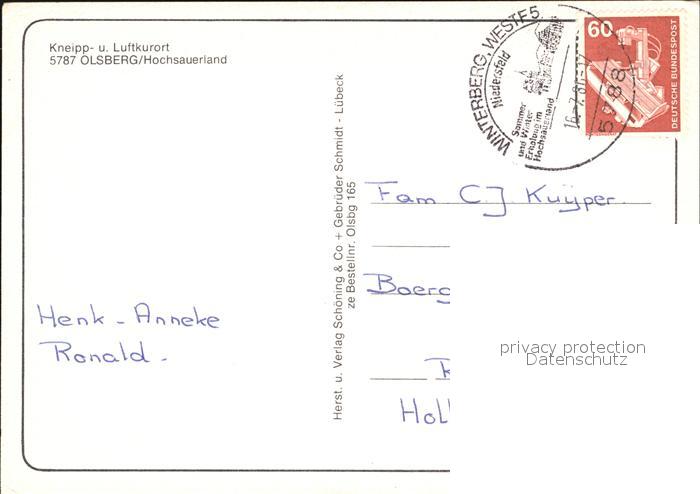 Kneipp- u. Luftkurort
5787 OLSBERG/Hochsauerland
WINTERBERG, WESTF 5
Niedersfeld
Sommer
und Winter
Erholung im
Hochsauerland
5788
60
DEUTSCHE BUNDESPOST
Herst. u. Verlag Schöning & Co + Gebrüder Schmidt - Lübeck
ze Bestellnr. Olsbg 165
Fam C J Kuijper.
Boerg
Holl
Henk - Anneke
Ronald -
privacy protection
Datenschutz